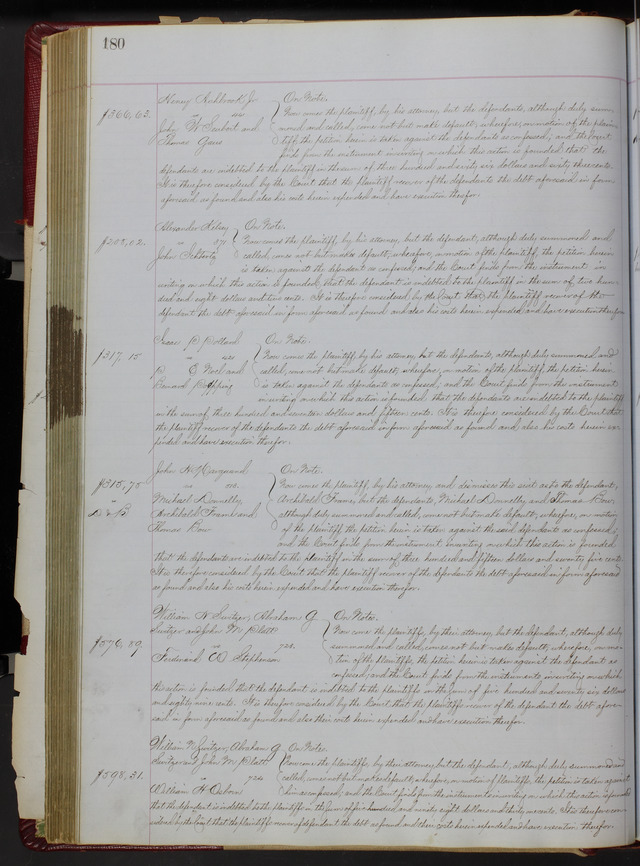 180
Henry Ashbrook Jr. On Note.
$366,63. Now comes the plaintiff, by his attorney, but the defendants, although duly sum-
John W and moned and called, come not but make default; wherefore, on motion of the plain-
Thomas tiff, the petition herein is taken against the defendants as confessed; and the Court
finds from the instrument in writing on which this action is founded that the
defendants are indebted to the plaintiff in the sum of three hundred and sixty six dollars and sixty three cents.
It is therefore considered by the Court that the plaintiff recover of the defendants the debt aforesaid in form
aforesaid as found and also his costs herein expended and have execution therefor.
Alexander Kelsey On Note.
$208,02. Now comes the plaintiff, by his attorney, but the defendant, although duly summoned and
John called, comes not but makes default; wherefore, on motion of the plaintiff, the petition herein
is taken against the defendant as confessed; and the Court finds from the instrument in
writing on which this action is founded, that the defendant is indebted to the plaintiff in the sum of two hun-
dred and eight dollars and two cents. It is therefore considered by the Court that the plaintiff recover of the
defendant the debt aforesaid in form aforesaid as found and also his costs herein expended, and have execution therefor.
Isaac On Note.
$317,15 Now comes the plaintiff, by his attorney, but the defendants, although duly summoned, and
and called, come not but make default; wherefore, on motion of the plaintiff the petition herein
is taken against the defendants as confessed; and the Court finds from the instrument
in writing on which this action is founded, that the defendants are indebted to the plaintiff
in the sum of three hundred and seventeen dollars and fifteen cents. It is therefore considered by the Court that
the plaintiff recover of the defendants the debt aforesaid in form aforesaid as found and also his costs herein ex-
pended and have execution therefor.
John H. On Note.
$315,75 Now comes the plaintiff, by his attorney and dismisses this suit as to the defendant,
Michael Donnelly, Archibald Frame, but the defendants, Michael Donnelly and Thomas Bow,
Archibald Frame and although duly summoned and called, come not but make default; wherefore, on motion
Thomas Bow of the plaintiff the petition herein is taken against the said defendants as confessed;
and the Court finds from the instrument in writing on which this action is founded
that the defendants are indebted to the plaintiff in the sum of three hundred and fifteen dollars and seventy five cents.
It is therefore considered by the Court that the plaintiff recover of the defendants the debt aforesaid in form aforesaid
as found and also his costs herein expended and have execution therefor.
William N Switzer, Abraham G. On Notes.
Switzer and John M. Platt Now come the plaintiffs, by their attorney, but the defendant, although duly
$576,89. 723. summoned and called, comes not but makes default; wherefore, on mo-
Ferdinand W. Stephenson tion of the plaintiffs, the petition herein is taken against the defendant as
confessed; and the Court finds from the instruments in writing on which
this action is founded that the defendant is indebted to the plaintiffs in the sum of five hundred and seventy six dollars
and eighty nine cents. It is therefore considered by the Court that the plaintiffs recover of the defendant the debt afore-
said in form aforesaid as found and also their costs herein expended and have execution therefor.
William N. Switzer, Abraham G On Notes.
Switzer and John M. Platt Now come the plaintiffs, by their attorney, but the defendant, although duly summoned and
$598.31. 724 called, comes not but makes default; wherefore, on motion of plaintiffs, the petition is taken against
William H Osborn him as confessed; and the Court finds from the instruments in writing on which the action is founded
that the defendant is indebted to the plaintiffs in the sum of five hundred and ninety eight dollars and thirty one cents. It is therefore con-
sidered by the Court that the plaintiffs recover of defendant the debt as found and their costs herein expended and have execution therefor.